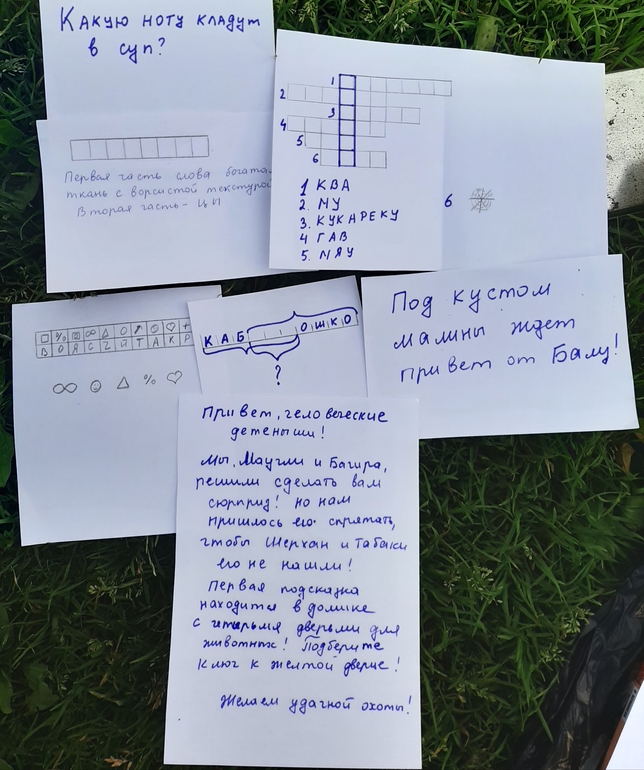 Какую ноту кладут
в суп?
Первая часть слова богата
ткань с ворсистой текстурой
Вторая часть - ЦИ
1
2
3
4
5
6
1 КВА
2. МУ
3. КУКАРЕКУ
4 ГАВ
5. МЯУ
6
% + %
КАБ ОШКО
?
Под кустом
малины ждет
привет от Балу!
Привет, человеческие
детеныши!
Мы, Маугли и Багира,
решили сделать вам
сюрприз! но нам
пришлось его спрятать,
чтобы Шерхан и Табаки
его не нашли!
Первая подсказка
находится в домике
с четырьмя дверьми для
животных! Подберите
ключ к желтой дверце!
Желаем удачной охоты!